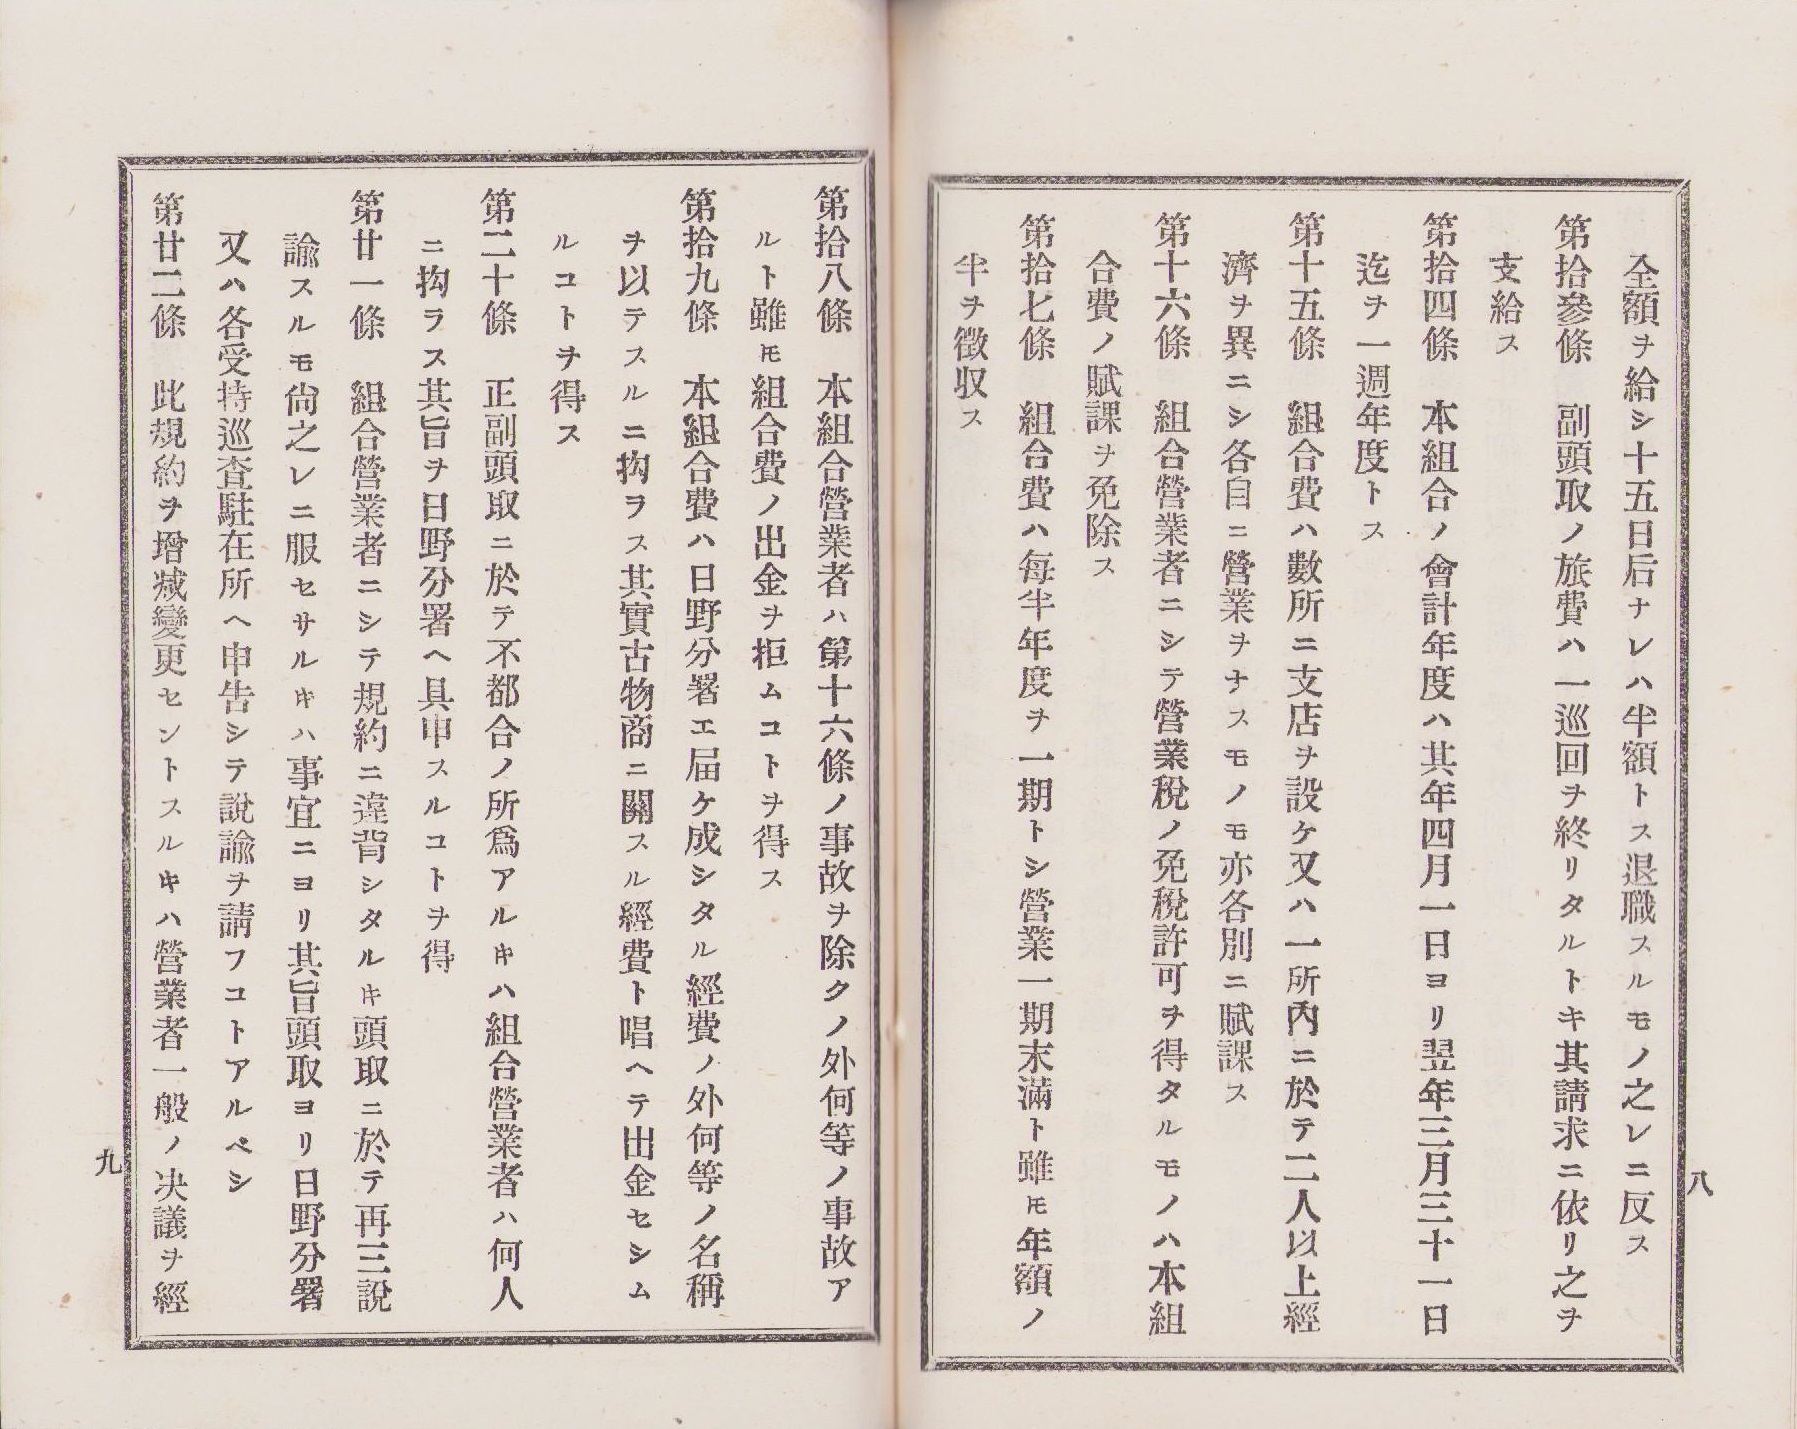 全額ヲ給シ十五日后ナレハ半額トス退職スルモノ之レニ反ス
第拾參條　副頭取ノ旅費ハ一巡回ヲ終リタルトキ其請求ニ依リ之ヲ
支給ス
第拾四條　本組合ノ會計年度ハ其年四月一日ヨリ翌年三月三十一日
迄ヲ一週年度トス
第十五條　組合費ハ數所ニ支店ヲ設ケ又ハ一所內ニ於テ二人以上經
濟ヲ異ニシ各自ニ營業ヲナスモノモ亦各別ニ賦課ス
第十六條　組合營業者ニシテ營業稅ノ免稅許可ヲ得タルモノハ本組
合費ノ賦課ヲ免除ス
第拾七條　組合費ハ每半年度ヲ一期トシ營業一期末滿ト雖𪜈年額ノ
半ヲ徵収ス
八
第拾八條　本組合營業者ハ第十六條ノ事故ヲ除クノ外何等ノ事故ア
ルト雖𪜈組合費ノ出金ヲ拒ムコトヲ得ス
第拾九條　本組合費ハ日野分署エ届ケ成シタル經費ノ外何等ノ名稱
ヲ以テスルニ拘ラス其實古物商ニ關スル經費ト唱ヘテ出金セシム
ルコトヲ得ス
第二十條　正副頭取ニ於テ不都合ノ所爲アルキハ組合營業者ハ何人
ニ拘ラス其旨ヲ日野分署ヘ具申スルコトヲ得
第廿一條　組合營業者ニシテ規約ニ違背シタルキ頭取ニ於テ再三說
諭スルモ尙之レニ服セサルキハ事宜ニヨリ其旨頭取ヨリ日野分署
又ハ各受持巡査駐在所ヘ申告シテ說諭ヲ請フコトアルベシ
第廿二條　此規約ヲ增减變更セントスルキハ營業者一般ノ决議ヲ經
九